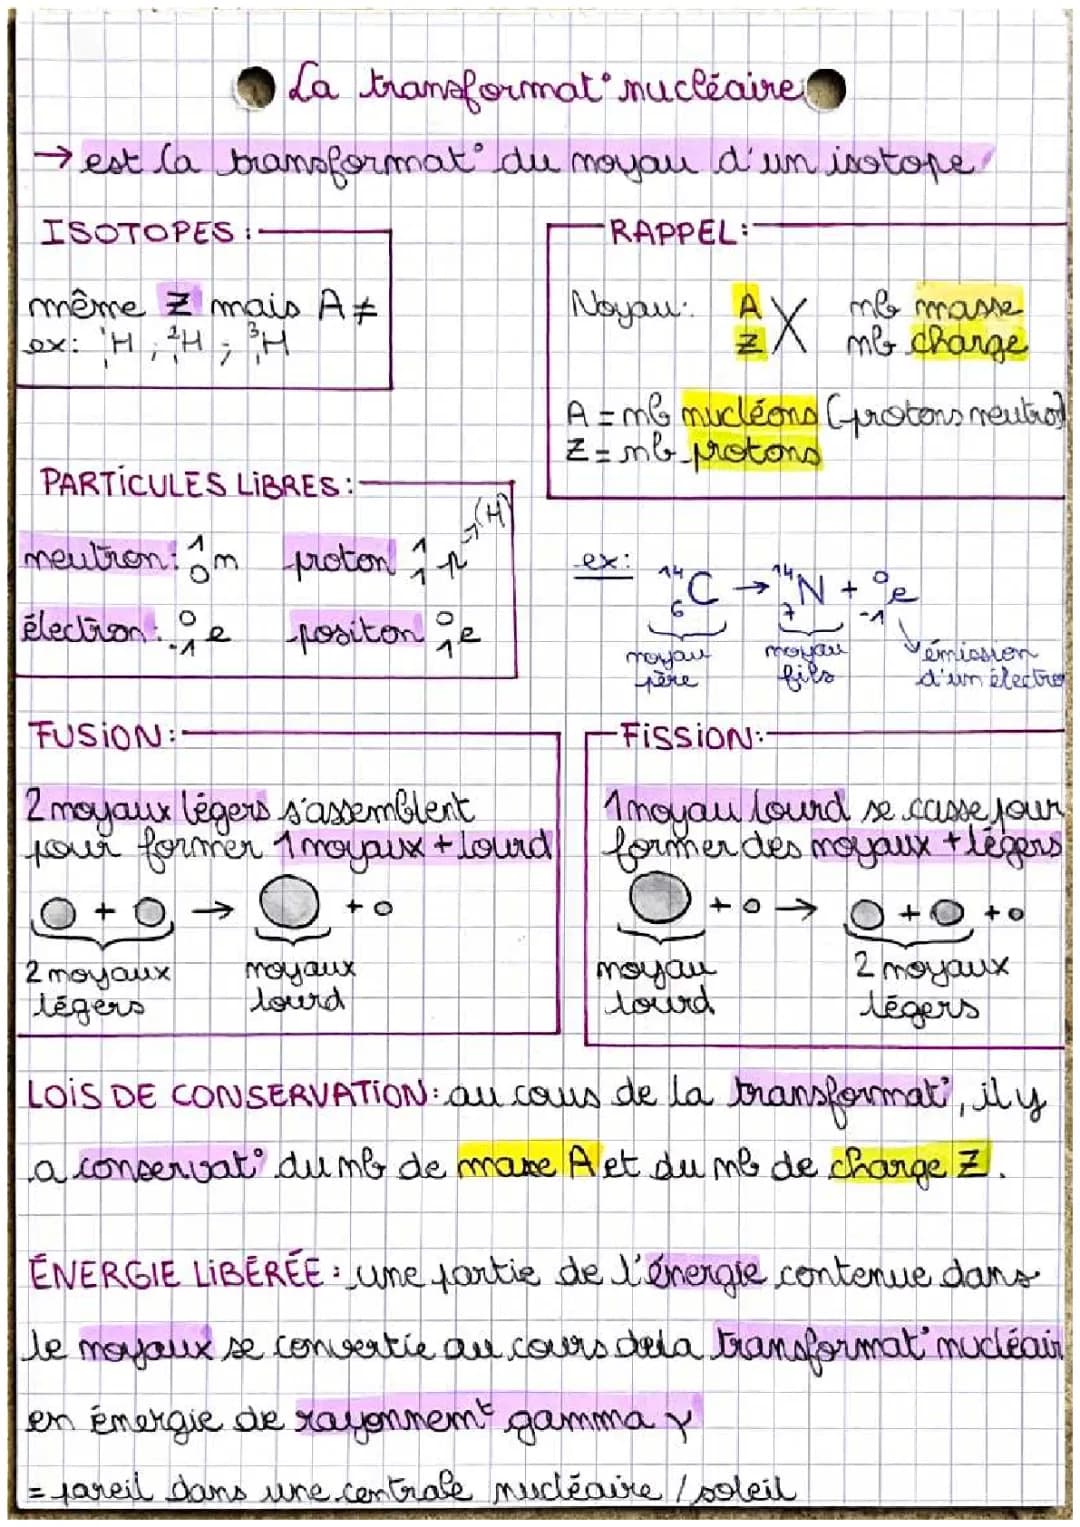 La transformat° nucléaire
→ est la transformat° du noyau d'un isotope
ISOTOPES :
même Z mais A ≠
ex: ¹₁H ; ²₁H ; ³₁H
RAPPEL:
Noyau: A X nb masse
Z nb charge
A = nb nucléons (protons neutro
Z = nb protons
PARTICULES LIBRES :
neutron: ¹₀n proton ¹₁p → (H)
électron: ⁰₋₁e positon ⁰₁e
ex: ¹⁴₆C → ¹⁴₇N + ⁰₋₁e
noyau père
noyau fils
émission
d'un électro
FUSION:
2 noyaux légers s'assemblent
pour former 1 noyaux + lourd
+ → + o
2 noyaux
légers
noyaux
lourd
FISSION:
1 noyau lourd se casse pour
former des noyaux + légers
+ o → + + o
noyau
lourd
2 noyaux
légers
LOIS DE CONSERVATION: au cous de la transformat°, il y
a conservat° du nb de masse A et du nb de charge Z.
ÉNERGIE LIBÉRÉE : une partie de l'énergie contenue dans
le noyaux se convertie au cours de la transformat° nucléair
en énergie de rayonnemt gamma γ
= pareil dans une centrale nucléaire / soleil